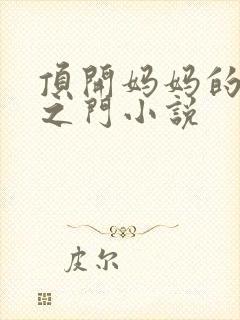 頂開妈妈的
之門小説
皮尔